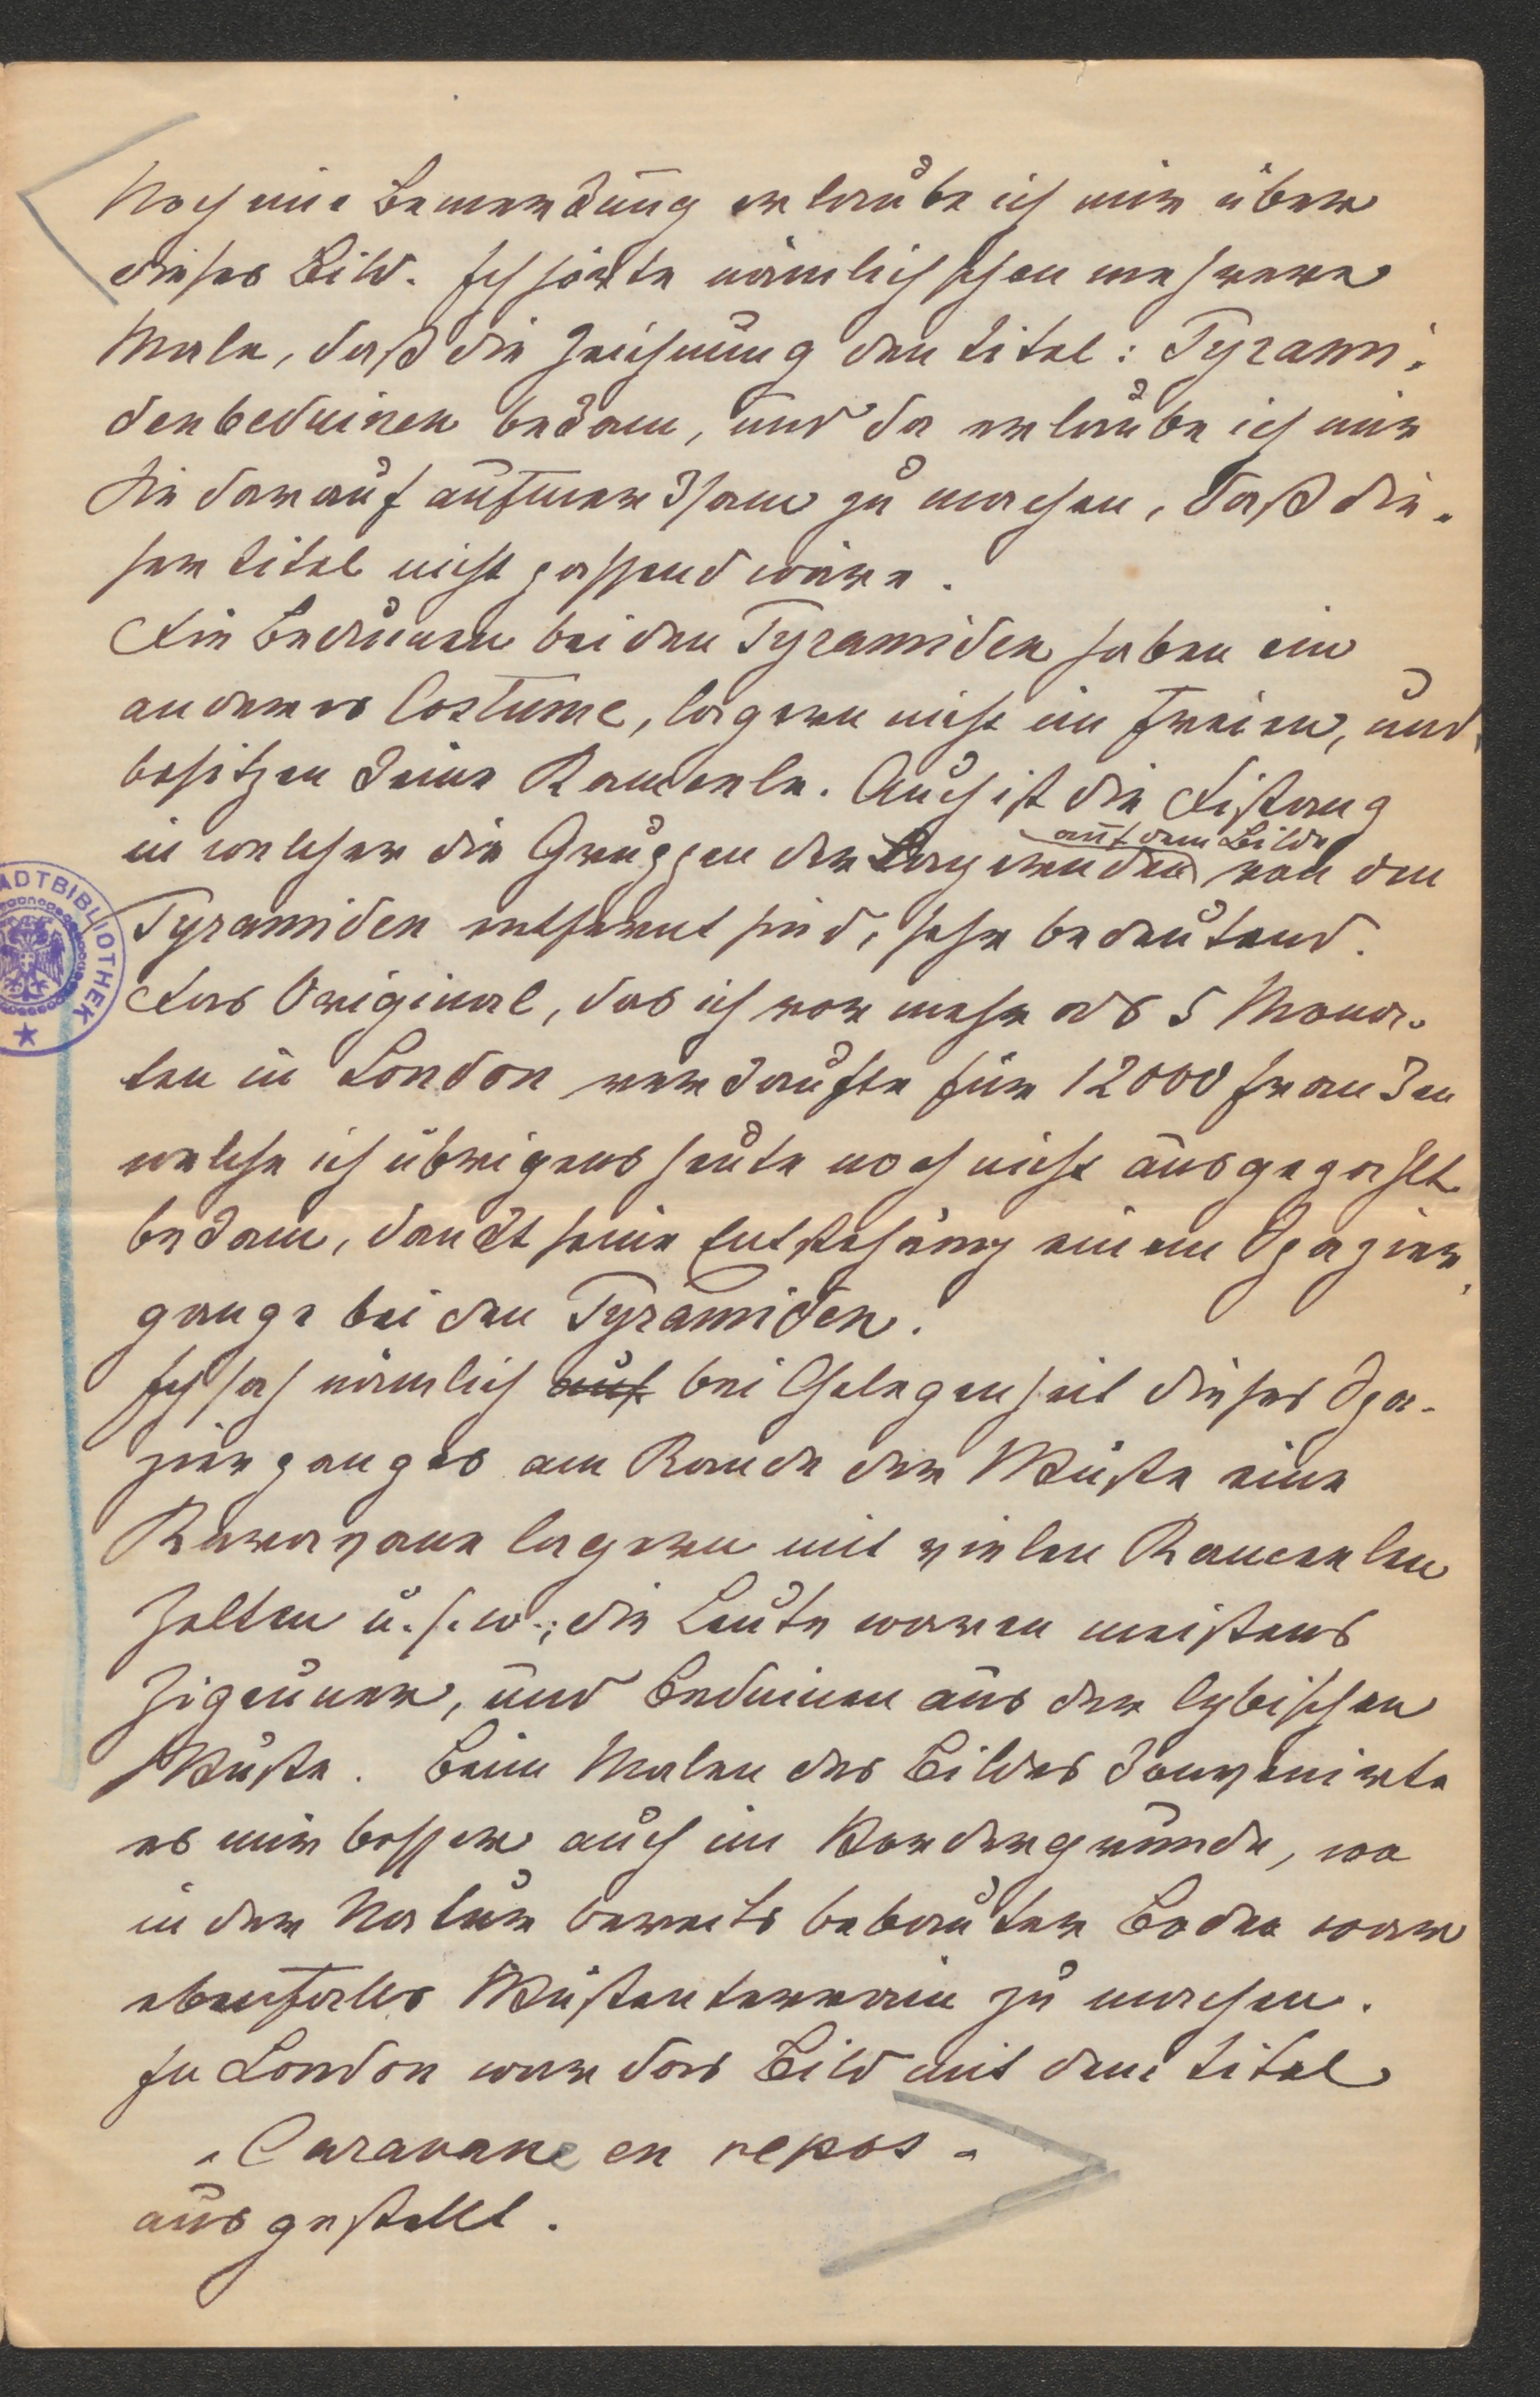 Noch eine Bemerkung erlaube ich mir über
dieses Bild. Ich hörte nämlich schon mehrere
Male, daß die Zeichnung den Titel: Pyrami-
denbeduinen bekam, und da erlaube ich mir
Sie darauf aufmerksam zu machen, daß die-
ser Titel nicht passend wäre.
Die Beduinen bei den Pyramiden haben ein
anderes Costüme, lagern nicht im Freien, und
besitzen keine Kameele. Auch ist die Distanz
auf dem Bilde
in welcher die Gruppen der Lagernden von den
Pyramiden entfernt sind, sehr bedeutend.
Das Original, das ich vor mehr als 5 Mona-
ten in London verkaufte für 12000 franken
welche ich übrigens heute noch nicht ausgezahlt
bekam, dankt seine Entstehung einem Spazier-
gange bei den Pyramiden.
Ich sah nämlich auf bei Gelegenheit dieses Spa-
zierganges am Rande der Wüste eine
Karavane lagern mit vielen Kameelen
Zelten u. s. w.; die Leute waren meistens
Zigeuner, und Beduinen aus der lybischen
Wüste. Beim Malen des Bildes konvenirte
es mir besser auch im Vordergrunde, wo
in der Natur bereits bebauter Boden war
ebenfalls Wüstenterrain zu machen.
In London war das Bild mit dem Titel
„Caravane en repos"
ausgestellt.
STADTBIBLIOTHEK